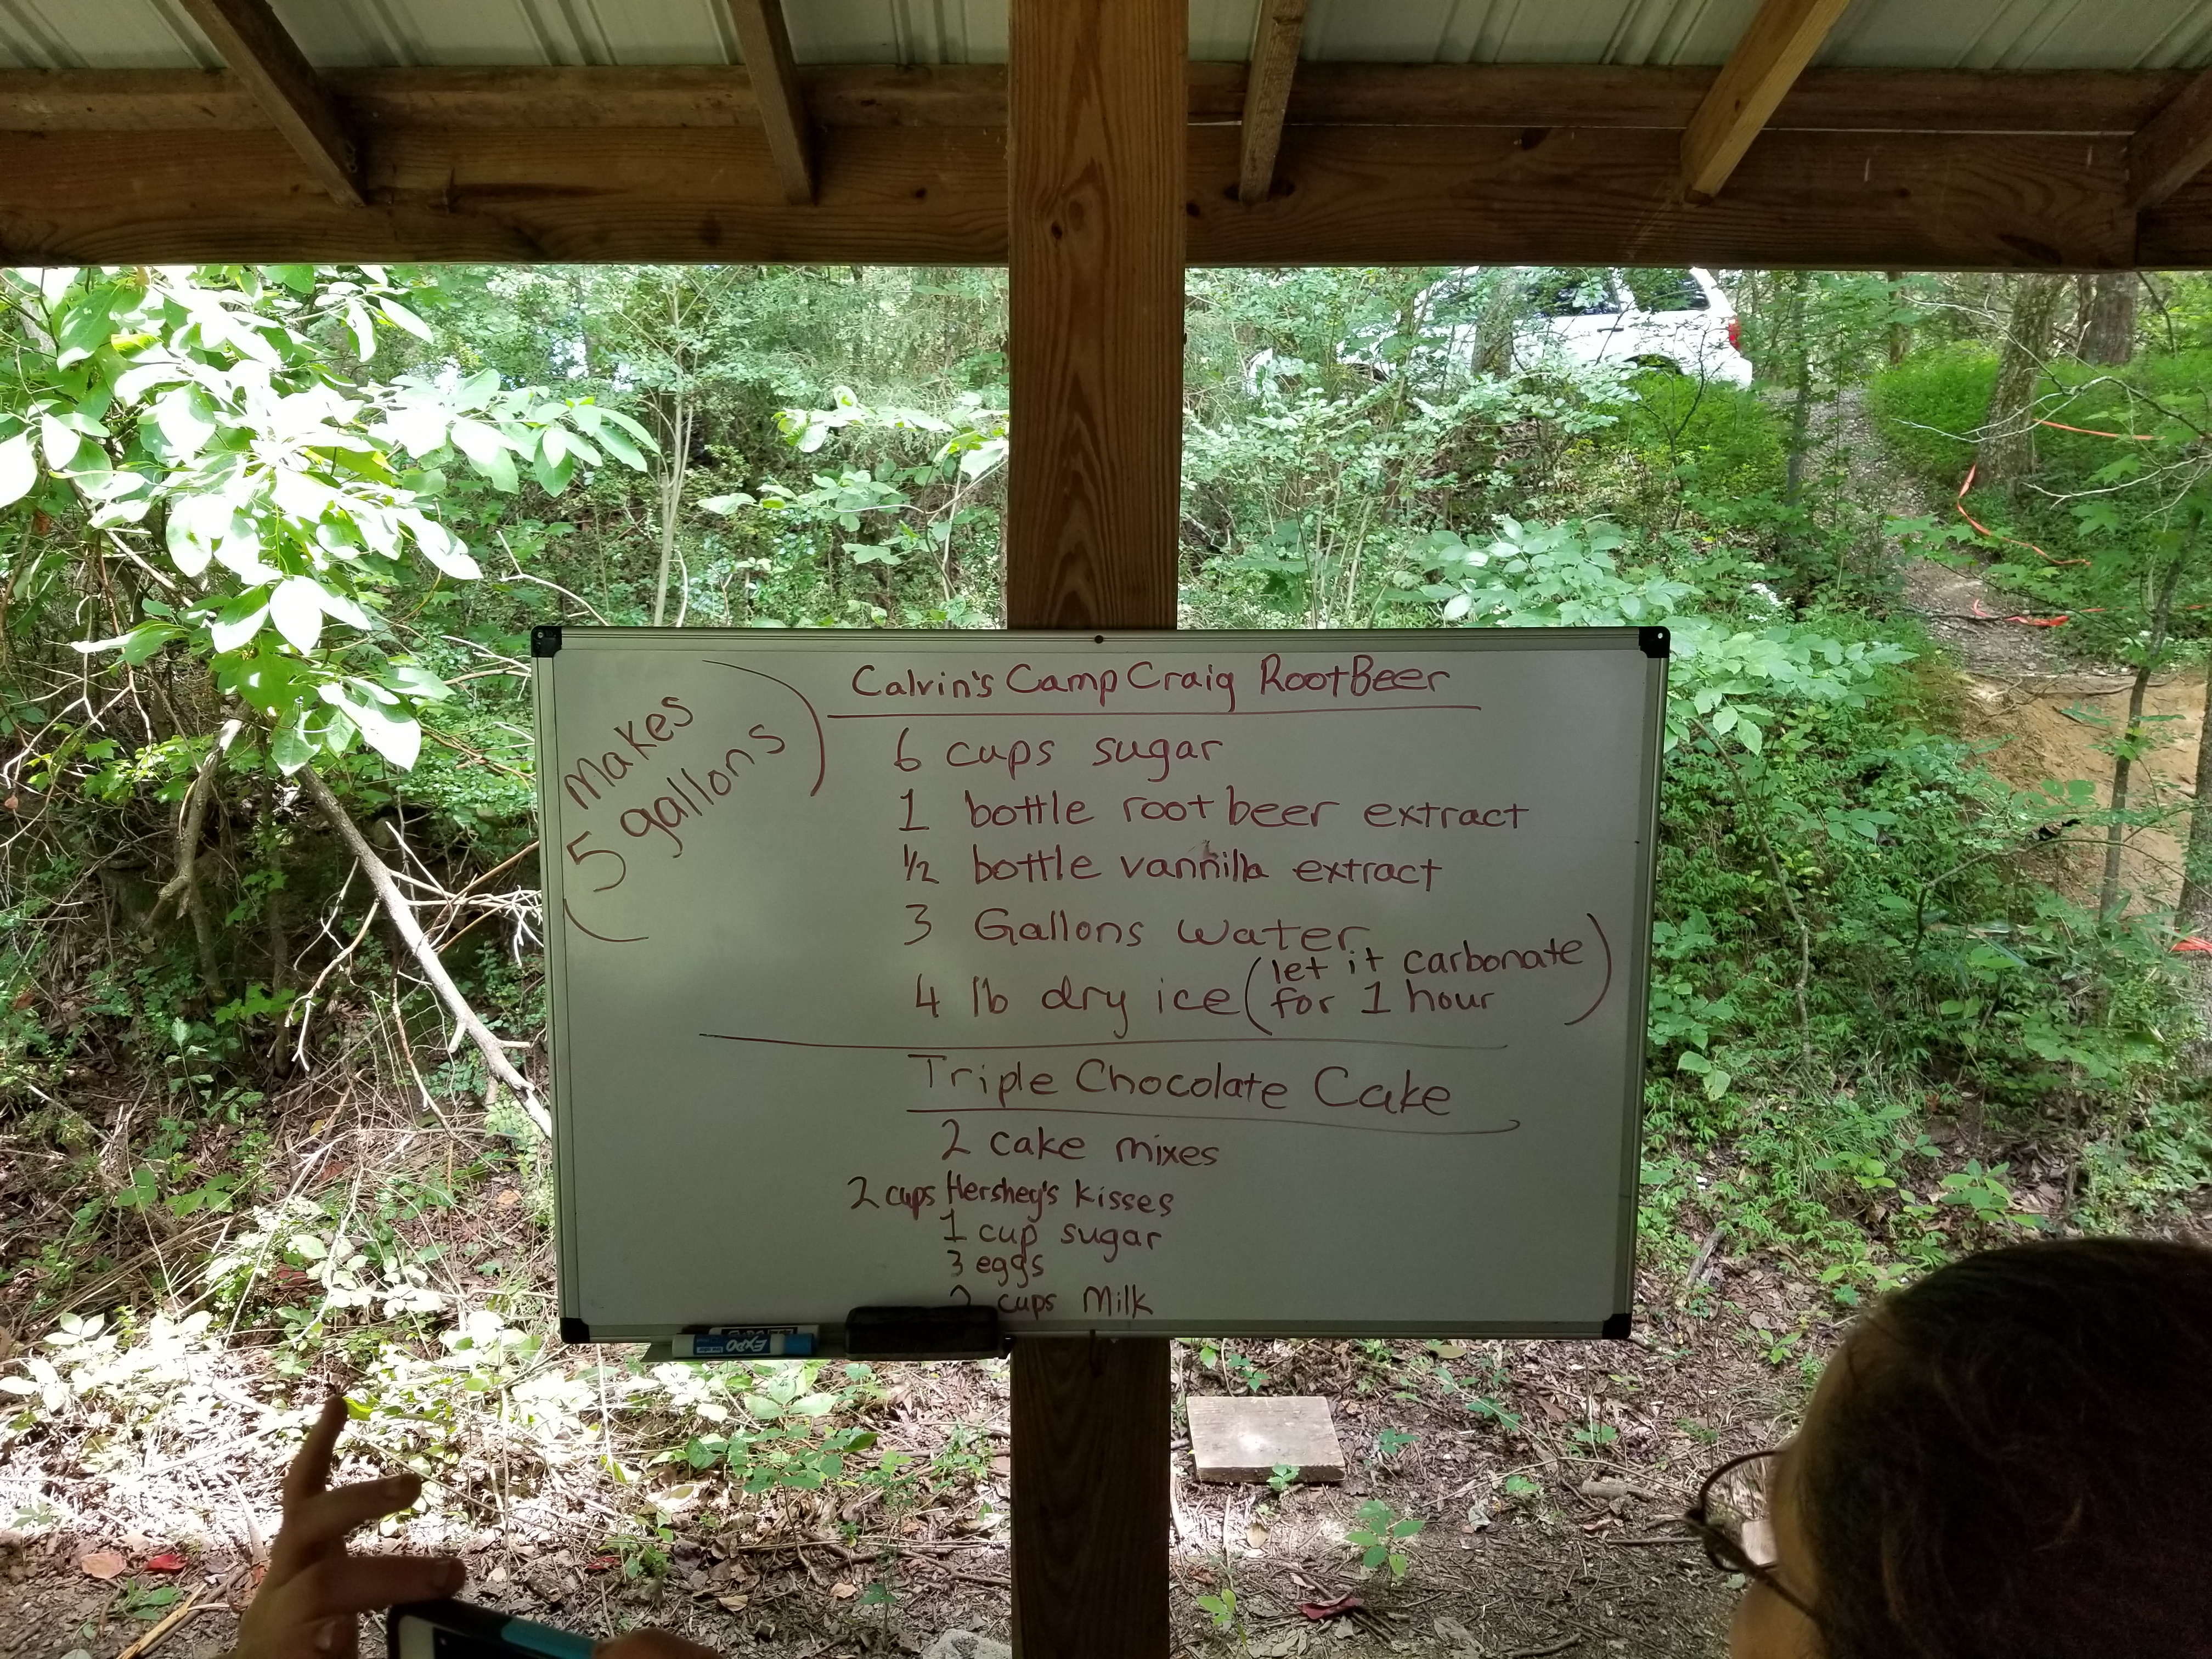 Makes
5 gallons
Calvin's Camp Craig Root Beer
6 cups sugar
1 bottle root beer extract
1/2 bottle vannilla extract
3 Gallons Water
4 lb dry ice (let it carbonate
for 1 hour)
Triple Chocolate Cake
2 cake mixes
2 cups Hershey's kisses
1 cup sugar
3 eggs
cups Milk
EXPO